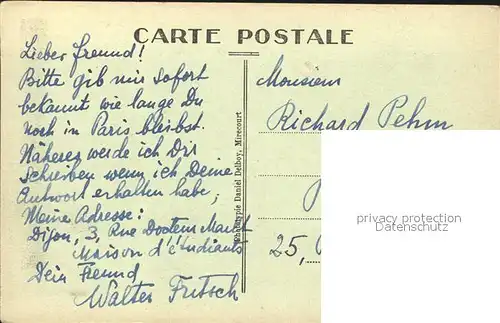 CARTE POSTALE
Lieber Freund!
Bitte gib mir sofort
bekannt wie lange Du
noch in Paris bleibst.
Näheres werde ich Dir
schreiben wenn ich Deine
Antwort erhalten habe,
Meine Adresse:
Dijon, 3, Rue Docteur Maret
Maison d'étudiants
Dein Freund
Walter Fritsch
Phototypie Daniel Delboy, Mirecourt
Monsieur
Richard Pehm
25,
privacy protection
Datenschutz